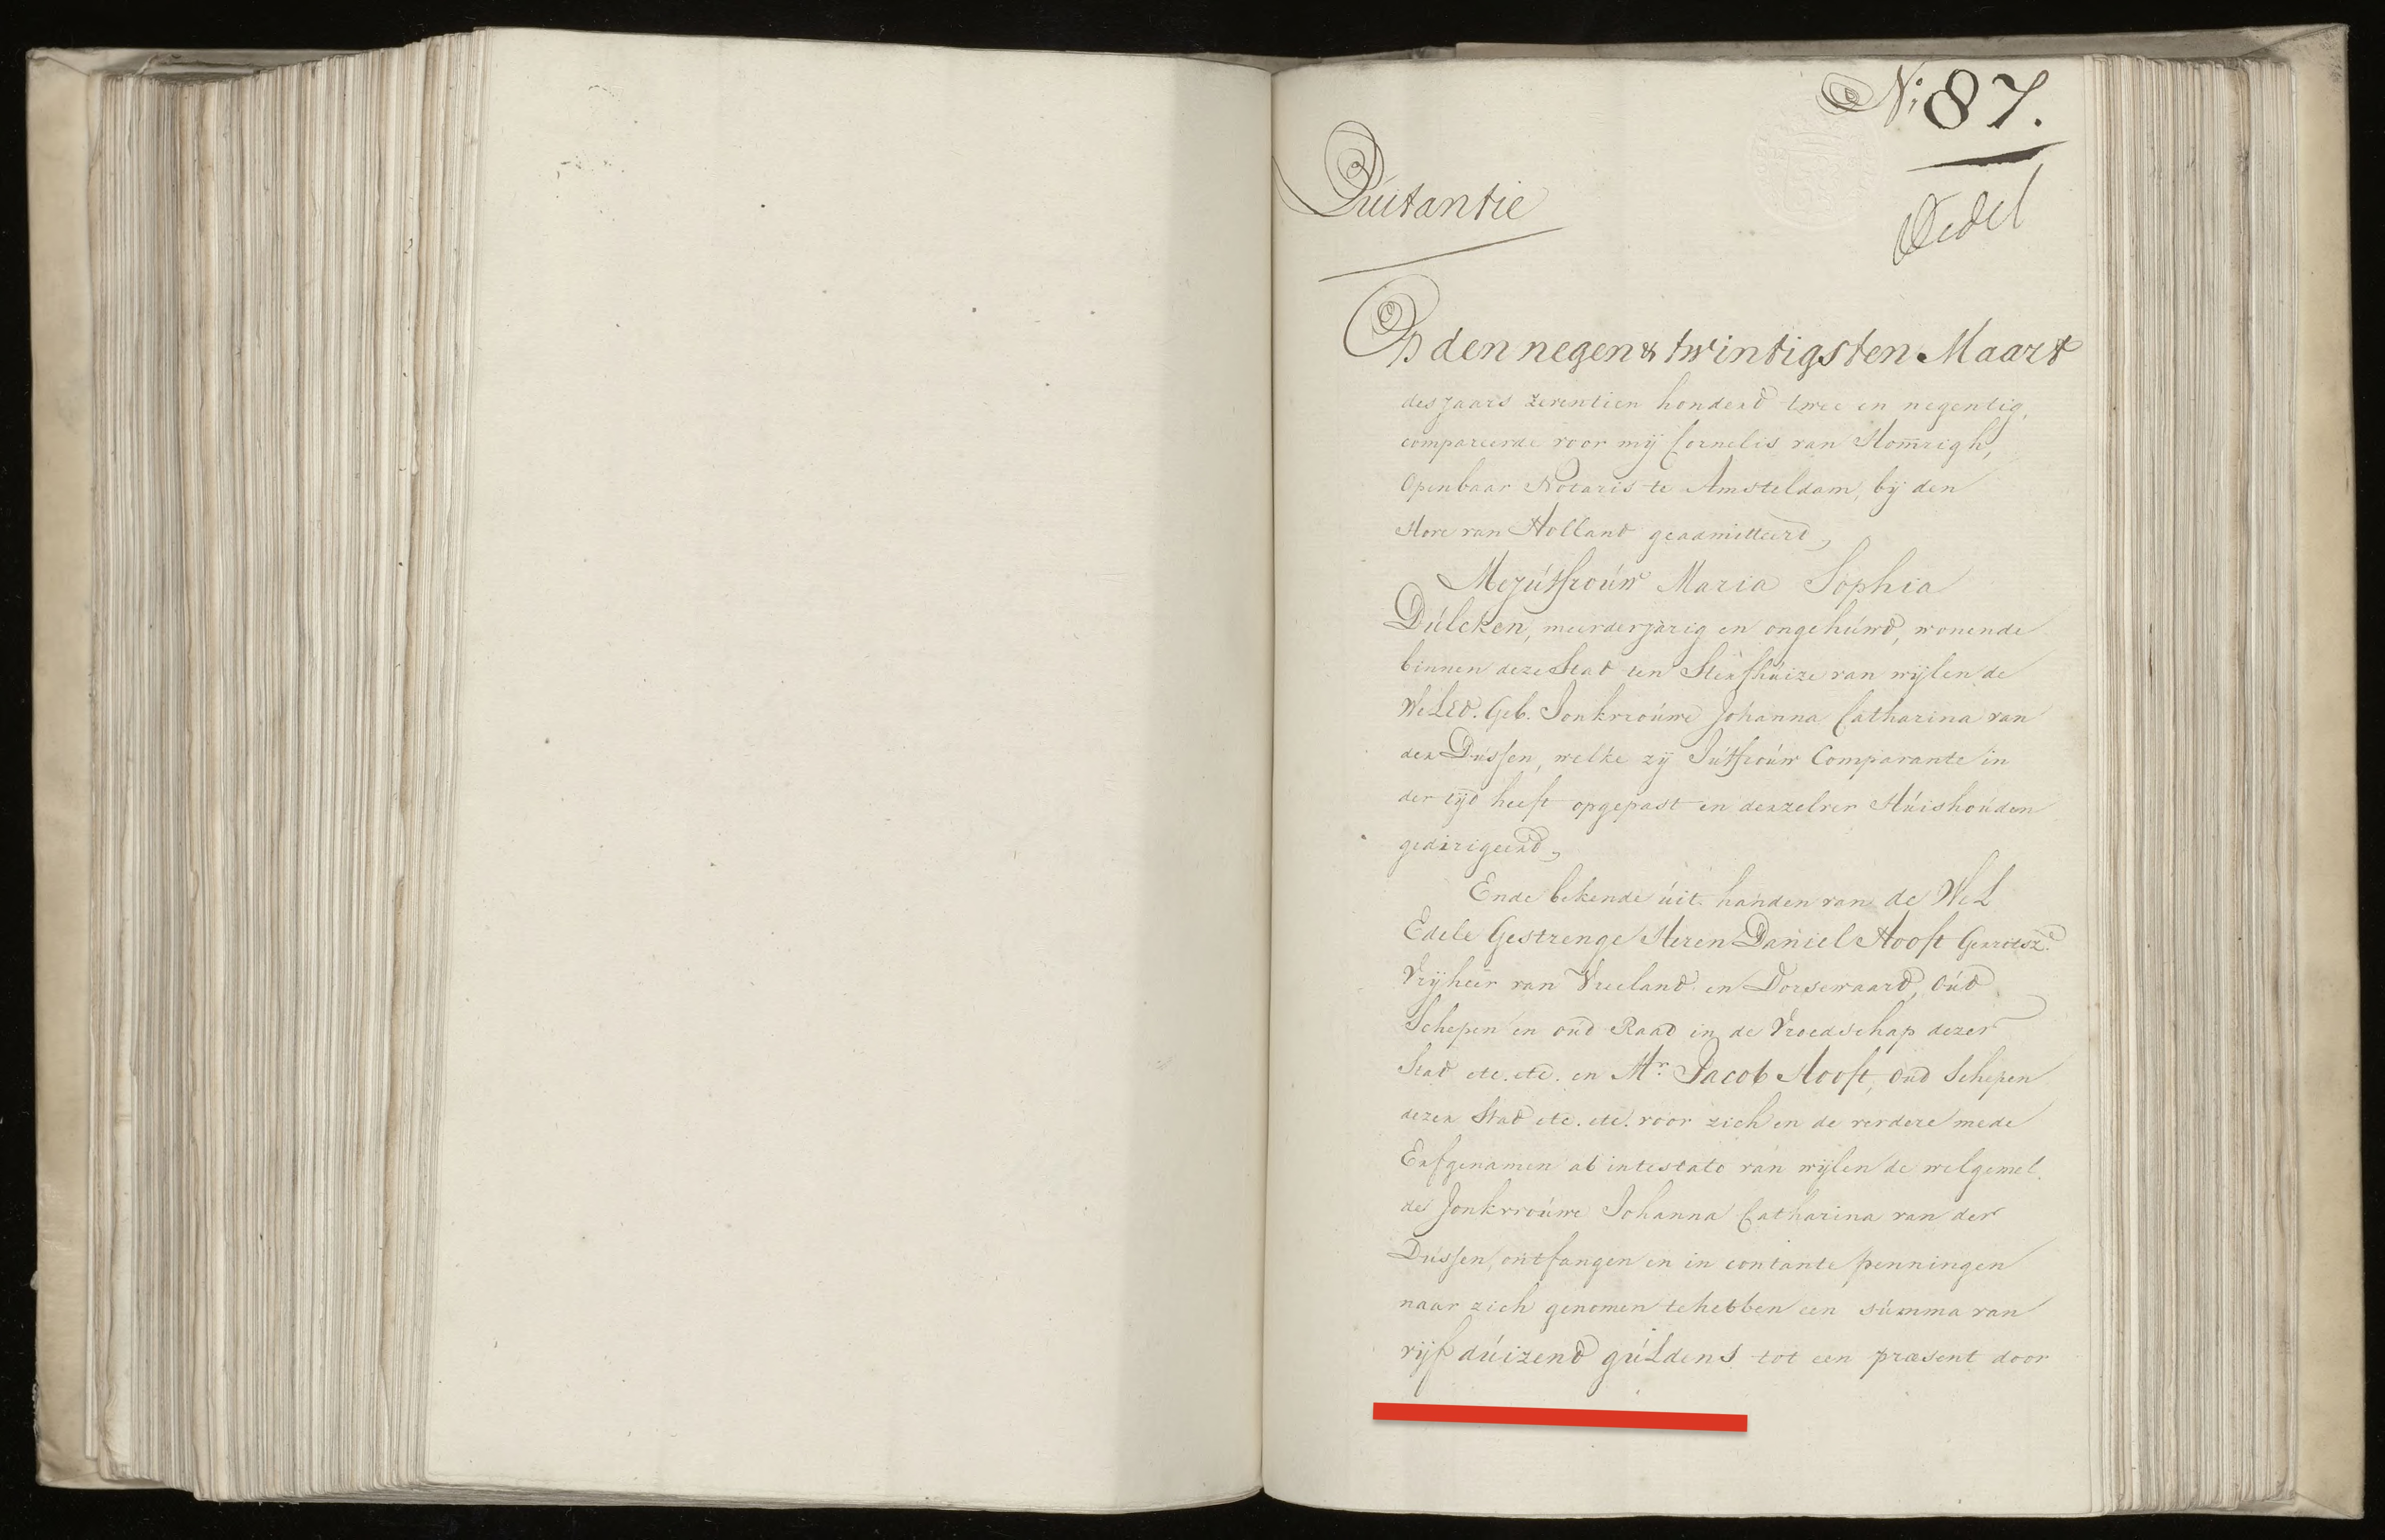 N.º 87.
Quitantie
Dedel
Op den negen & twintigsten Maart
des jaars zeventien honderd twee en negentig,
compareerde voor mij Cornelis van Hom̄righ,
Openbaar Notaris te Amsteldam, bij den
Hove van Holland geadmitteerd,
Mejúffroúw Maria Sophia
Dúlcken, meerderjarig en ongehúwd, wonende
binnen deze Stad ten Sterfhúize van wijlen de
WelEd. Geb. Jonkvroúwe Johanna Catharina van
der Dússen, welke zij Júffroúw Comparante in
der tijd heeft opgepast en derzelver Húishoúden
gedirigeerd,
Ende bekende úit handen van de Wel
Edele Gestrenge Heren Daniel Hooft Gerritsz.
Vrijheer van Vreeland en Dorsewaard, Oúd
Schepen en oúd Raad in de Vroedschap dezer
Stad etc. etc. en Mr. Jacob Hooft, Oúd Schepen
dezer Stad etc. etc. voor zich en de verdere mede
Erfgenamen ab intestato van wijlen de welgemel
de Jonkvroúwe Johanna Catharina van der
Dússen, ontfangen en in contante penningen
naar zich genomen te hebben een súmma van
vijf dúizend gúldens tot een præsent door